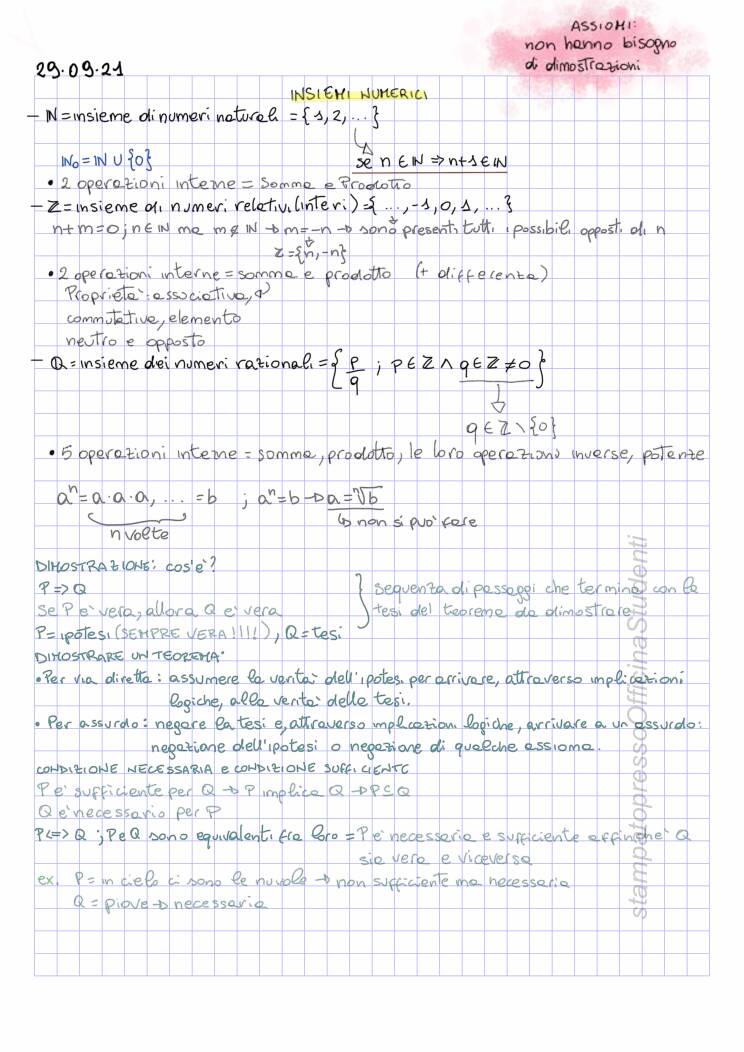 ASSIOMI:
non hanno bisogno
di dimostrazioni
29.09.21
INSIEMI NUMERICI
– N = insieme di numeri naturali = {1, 2, ...}
se n ∈ N ⇒ n+1 ∈ N
N₀ = N ∪ {0}
• 2 operazioni interne = somma e Prodotto
– Z = insieme di numeri relativi (interi) = { ..., -1, 0, 1, ... }
n+m=0 ; n ∈ N ma m ∉ N → m=-n → sono presenti tutti i possibili opposti di n
Z = {n, -n}
• 2 operazioni interne = somma e prodotto (+ differenza)
Proprietà: associativa,
commutativa, elemento
neutro e opposto
– Q = insieme dei numeri razionali = { p/q ; p ∈ Z ∧ q ∈ Z ≠ 0 }
q ∈ Z \ {0}
• 5 operazioni interne = somma, prodotto, le loro operazioni inverse, potenze
aⁿ = a · a · a, ... = b ; aⁿ = b → a = ⁿ√b
n volte
↳ non si può fare
DIMOSTRAZIONE: cos'è?
P => Q
Se P è vera, allora Q è vera
P = ipotesi (SEMPRE VERA!!!!), Q = tesi
} sequenza di passaggi che termina con la
tesi del teorema da dimostrare
DIMOSTRARE UN TEOREMA:
• Per via diretta: assumere la verità dell'ipotesi per arrivare, attraverso implicazioni
logiche, alla verità della tesi.
• Per assurdo: negare la tesi e, attraverso implicazioni logiche, arrivare a un assurdo:
negazione dell'ipotesi o negazione di qualche assioma.
CONDIZIONE NECESSARIA e CONDIZIONE SUFFICIENTE
P è sufficiente per Q → P implica Q → P ⊆ Q
Q è necessario per P
P <=> Q ; P e Q sono equivalenti fra loro = P è necessaria e sufficiente affinché Q
sia vera e viceversa
ex. P = in cielo ci sono le nuvole → non sufficiente ma necessaria
Q = piove → necessaria
stampatopressoOfficinaStudenti